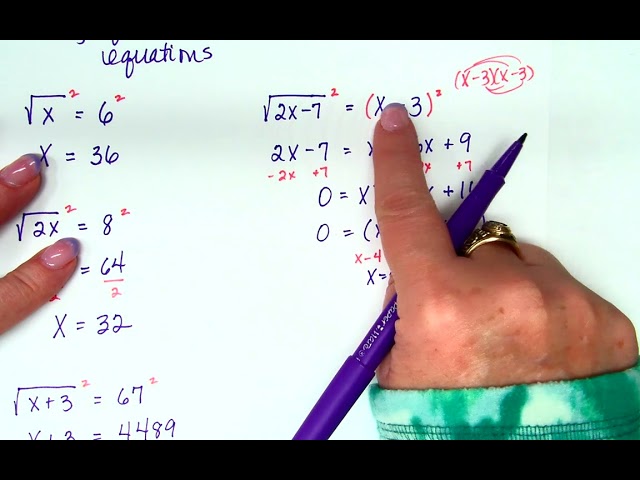 equations
√x ² = 6 ²
x = 36
√2x ² = 8 ²
= 64
2
x = 32
√x+3 ² = 67 ²
x+3 = 4489
√2x-7 ² = (x-3)²
(x-3)(x-3)
2x-7 = x x + 9
-2x +7 x +7
0 = x x + 16
0 = (x
x-4
x=